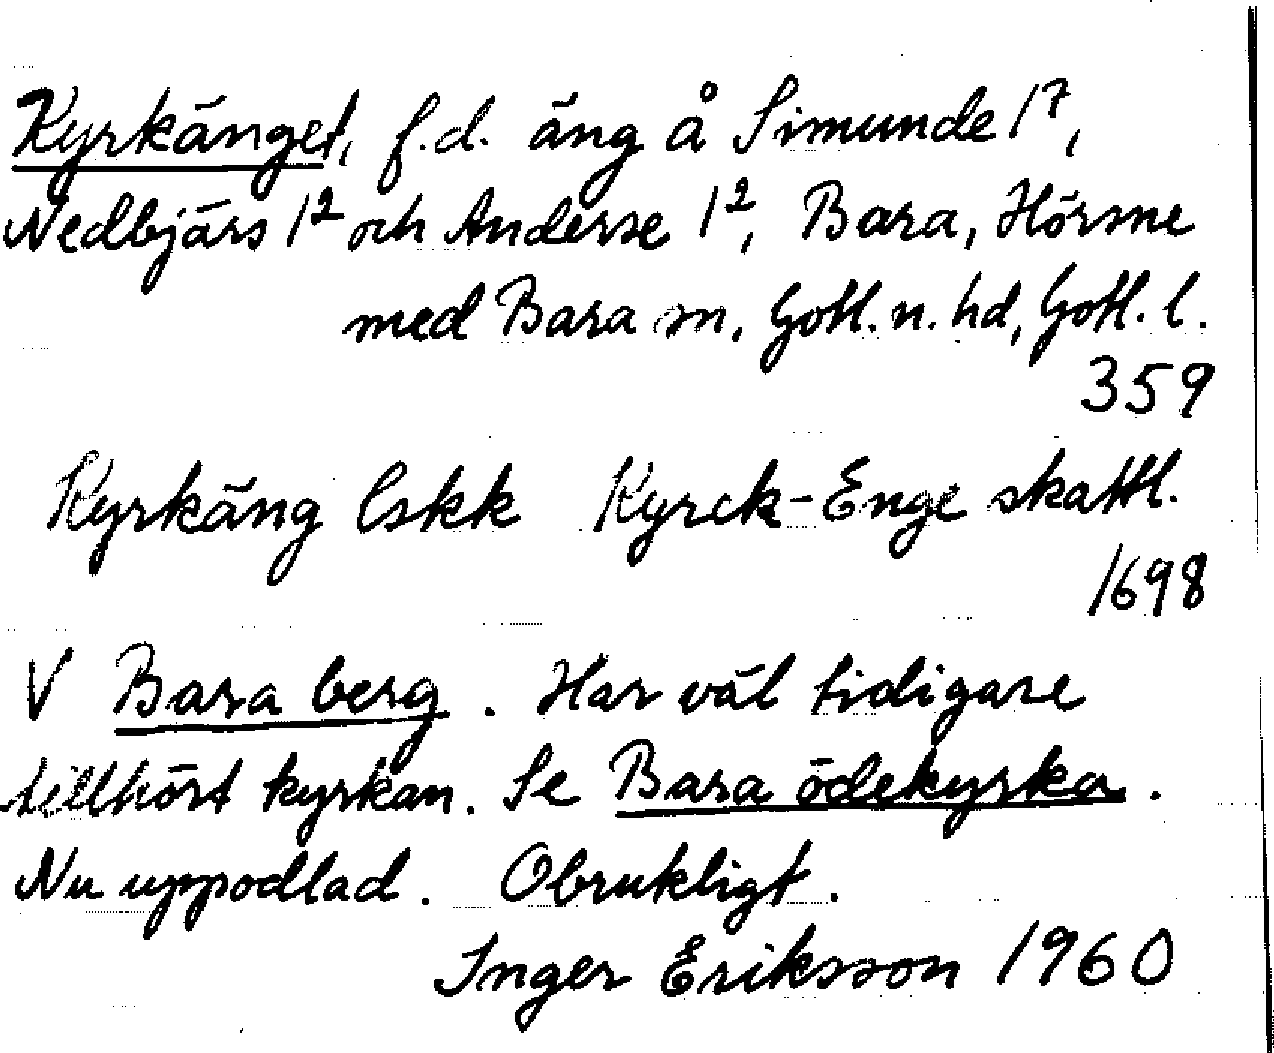 Kyrkänget, f.d. äng å Simunde 1⁷,
Nedbjärs 1² och Anderse 1², Bara, Hörsne
med Bara sn, Gotl. n. hd, Gotl. l.
359
Kyrkäng lskk Kyrck-Enge skattl.
1698
V Bara berg. Har väl tidigare
tillhört kyrkan. Se Bara ödekyrka.
Nu uppodlad. Obrukligt.
Inger Eriksson 1960